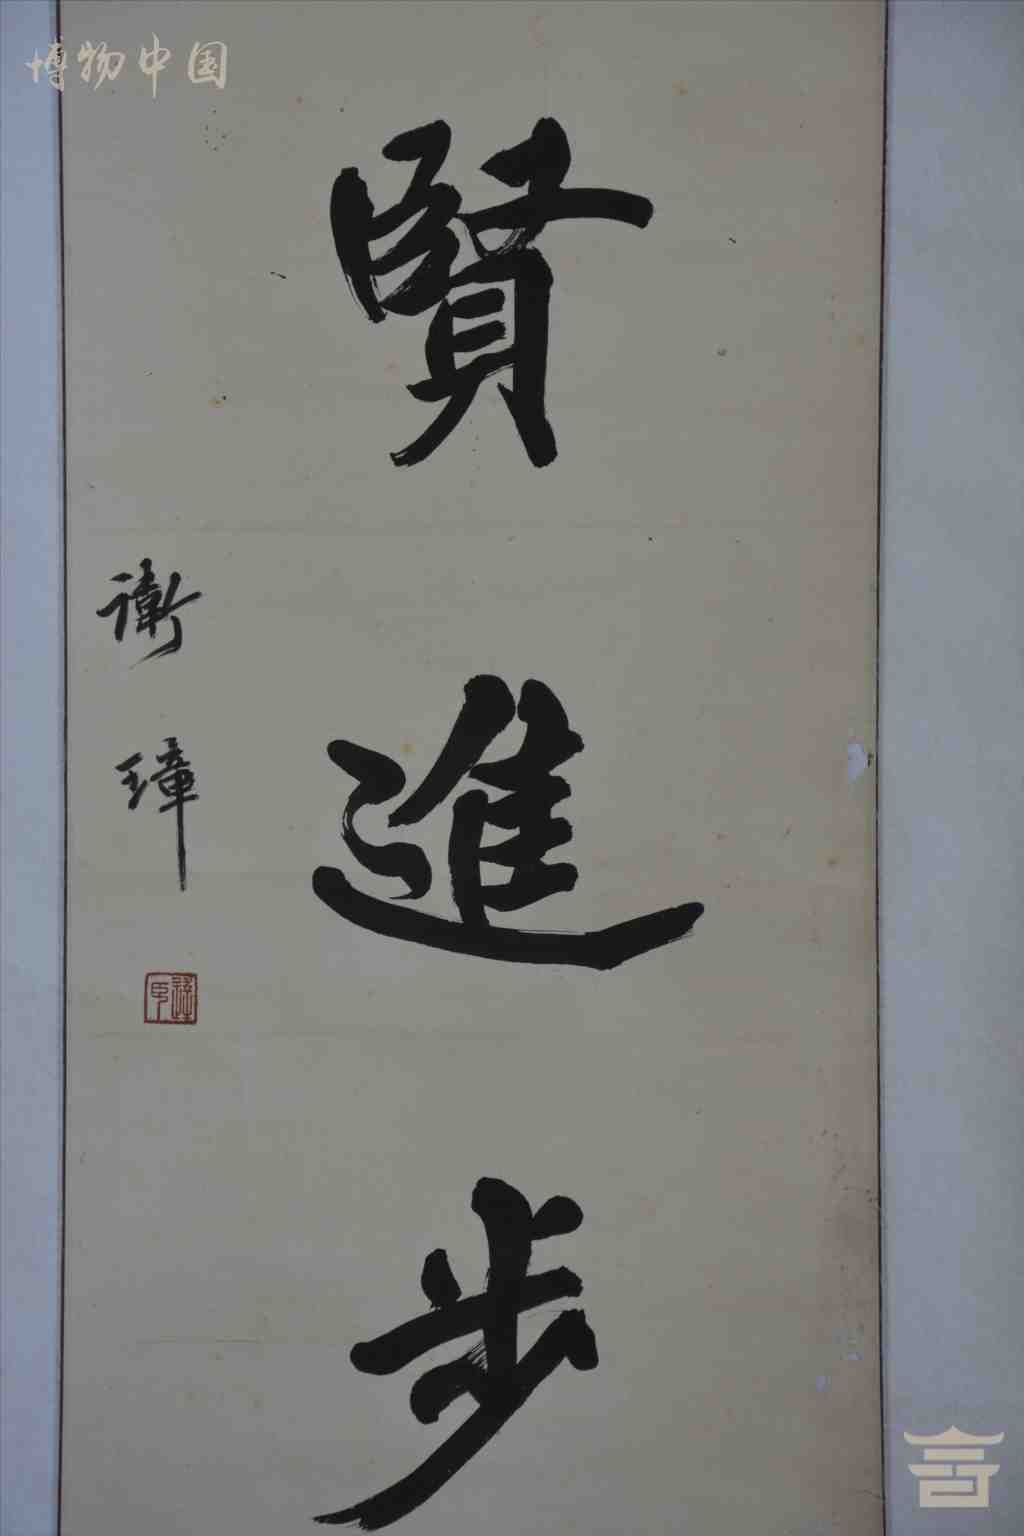 博物中国
賢進步
衛璋